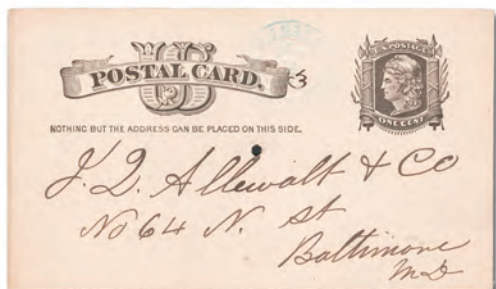 US
POSTAL CARD.
U.S. POSTAGE
ONE CENT
NOTHING BUT THE ADDRESS CAN BE PLACED ON THIS SIDE.
J. Q. Allewalt & Co
No 64 N. St
Baltimore
MD